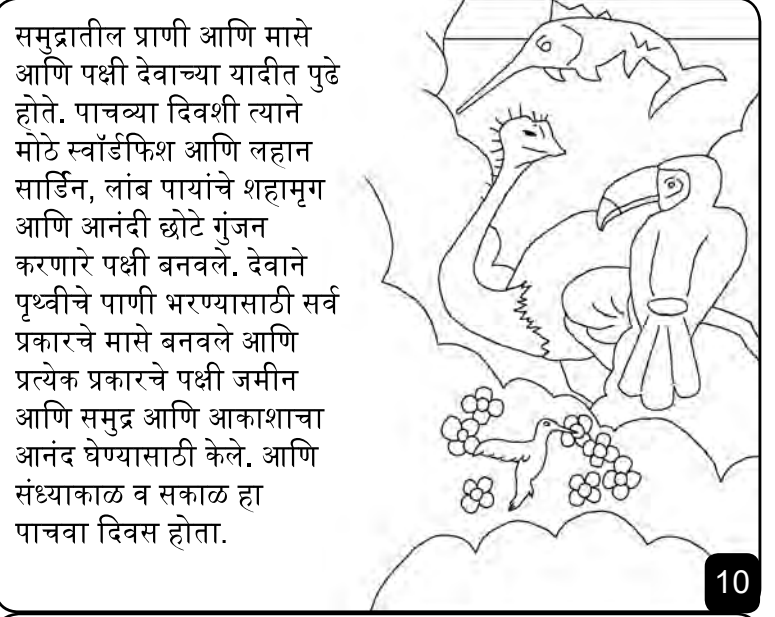 समुद्रातील प्राणी आणि मासे
आणि पक्षी देवाच्या यादीत पुढे
होते. पाचव्या दिवशी त्याने
मोठे स्वॉर्डफिश आणि लहान
सार्डिन, लांब पायांचे शहामृग
आणि आनंदी छोटे गुंजन
करणारे पक्षी बनवले. देवाने
पृथ्वीचे पाणी भरण्यासाठी सर्व
प्रकारचे मासे बनवले आणि
प्रत्येक प्रकारचे पक्षी जमीन
आणि समुद्र आणि आकाशाचा
आनंद घेण्यासाठी केले. आणि
संध्याकाळ व सकाळ हा
पाचवा दिवस होता.
10